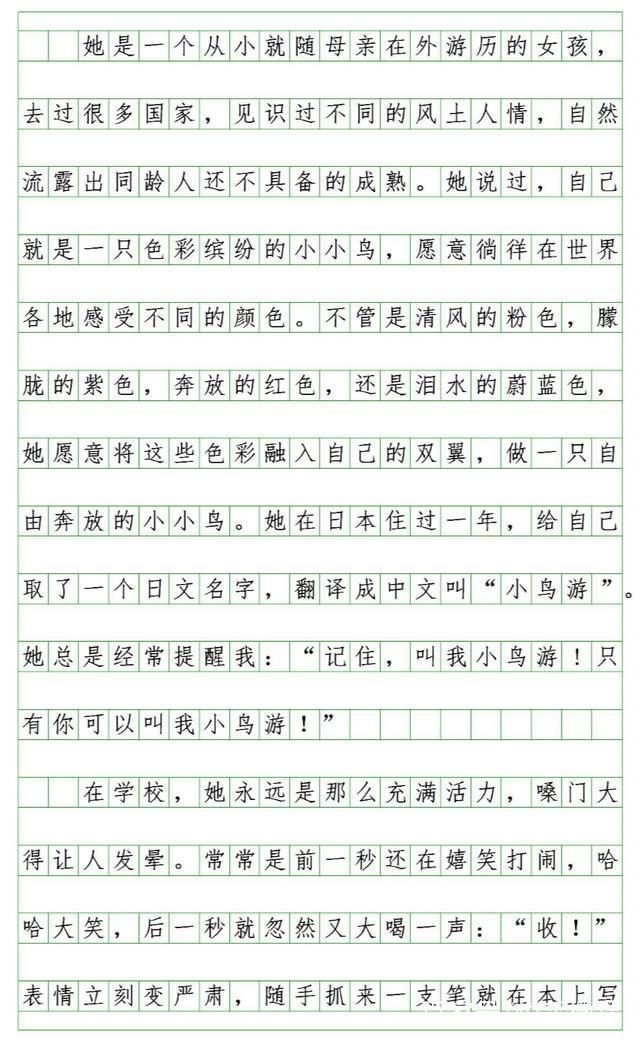 她是一个从小就随母亲在外游历的女孩，
去过很多国家，见识过不同的风土人情，自然
流露出同龄人还不具备的成熟。她说过，自己
就是一只色彩缤纷的小小鸟，愿意徜徉在世界
各地感受不同的颜色。不管是清风的粉色，朦
胧的紫色，奔放的红色，还是泪水的蔚蓝色，
她愿意将这些色彩融入自己的双翼，做一只自
由奔放的小小鸟。她在日本住过一年，给自己
取了一个日文名字，翻译成中文叫“小鸟游”。
她总是经常提醒我：“记住，叫我小鸟游！只
有你可以叫我小鸟游！”
在学校，她永远是那么充满活力，嗓门大
得让人发晕。常常是前一秒还在嬉笑打闹，哈
哈大笑，后一秒就忽然又大喝一声：“收！”
表情立刻变严肃，随手抓来一支笔就在本上写